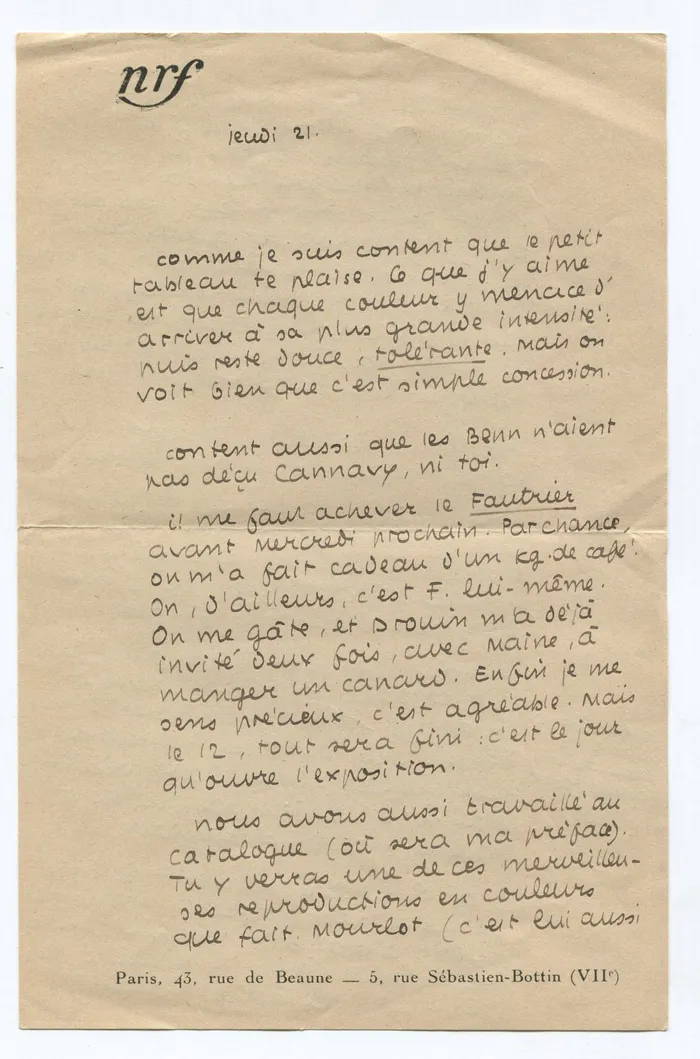 nrf
jeudi 21.
comme je suis content que le petit
tableau te plaise. Ce que j'y aime
est que chaque couleur y menace d'
arriver à sa plus grande intensité:
puis reste douce, tolérante. Mais on
voit bien que c'est simple concession.
content aussi que les Benn n'aient
pas déçu Cannavy, ni toi.
il me faut achever le Fautrier
avant Mercredi prochain. Par chance,
on m'a fait cadeau d'un kg. de café.
On, d'ailleurs, c'est F. lui-même.
On me gâte, et Drouin m'a déjà
invité deux fois, avec Maine, à
manger un canard. Enfin je me
sens précieux, c'est agréable. Mais
le 12, tout sera fini : c'est le jour
qu'ouvre l'exposition.
nous avons aussi travaillé au
catalogue (où sera ma préface).
Tu y verras une de ces merveilleu-
ses reproductions en couleurs
que fait Mourlot (c'est lui aussi
Paris, 43, rue de Beaune — 5, rue Sébastien-Bottin (VIIe)